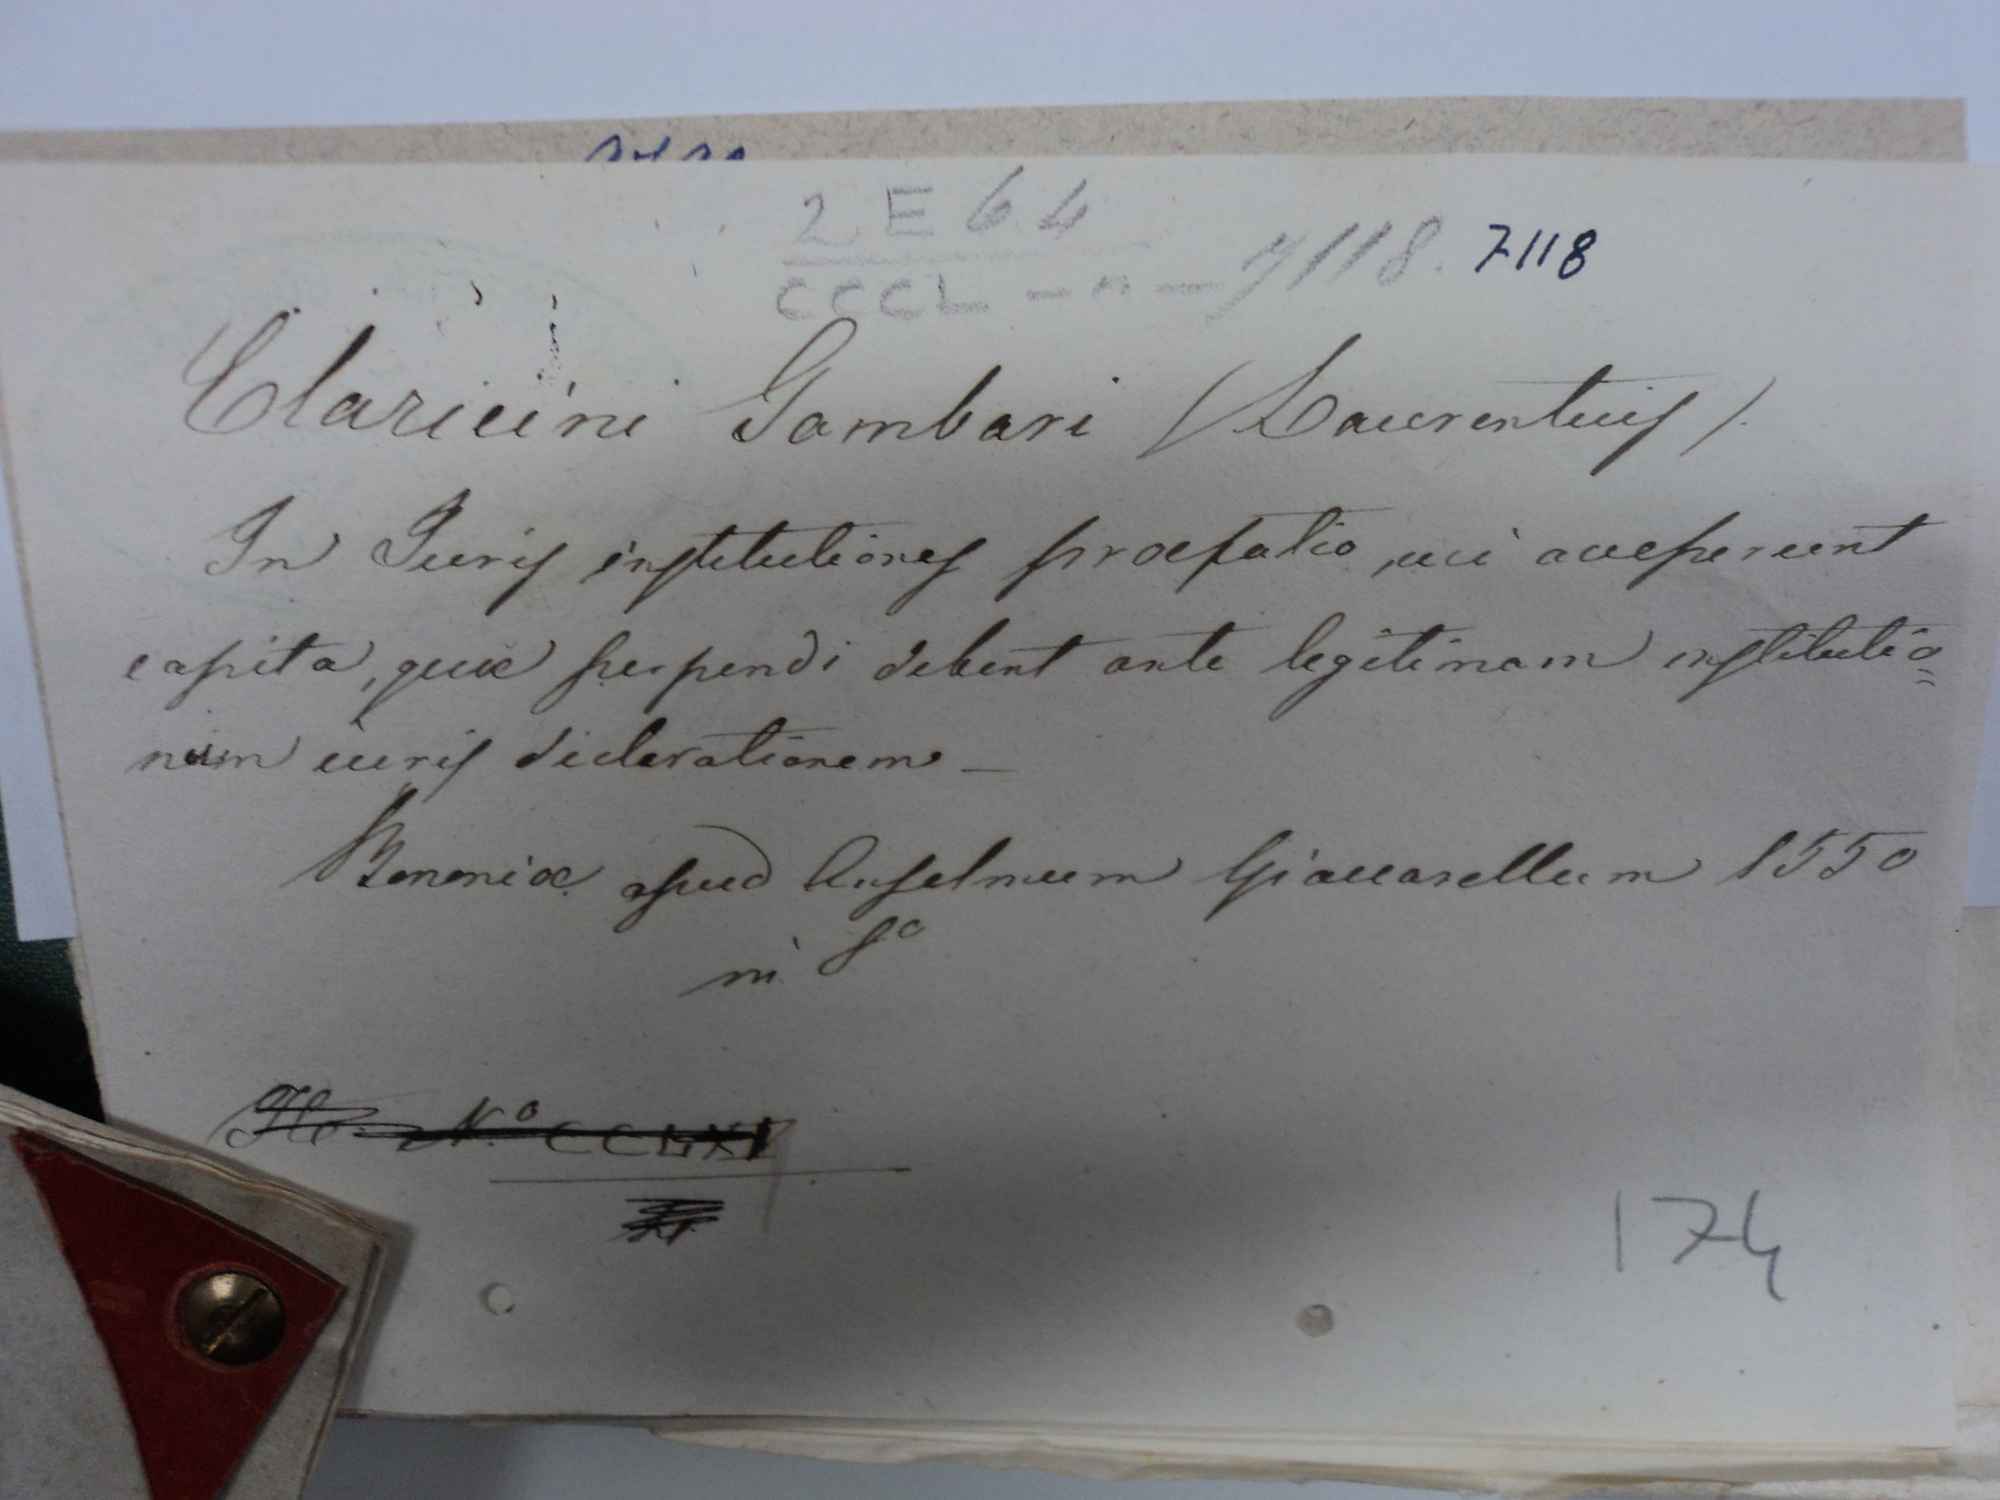 2 E 64
CCCL — n — 7118. 7118
Claricini Gambari (Laurentius).
In Juris institutiones praefatio, cui accesserunt
capita, quae perpendi debent ante legitimam institutio=
num iuris declarationem —
Bononiae apud Anselmum Giaccarellum 1550
in 8°
N.° CCLXI
174